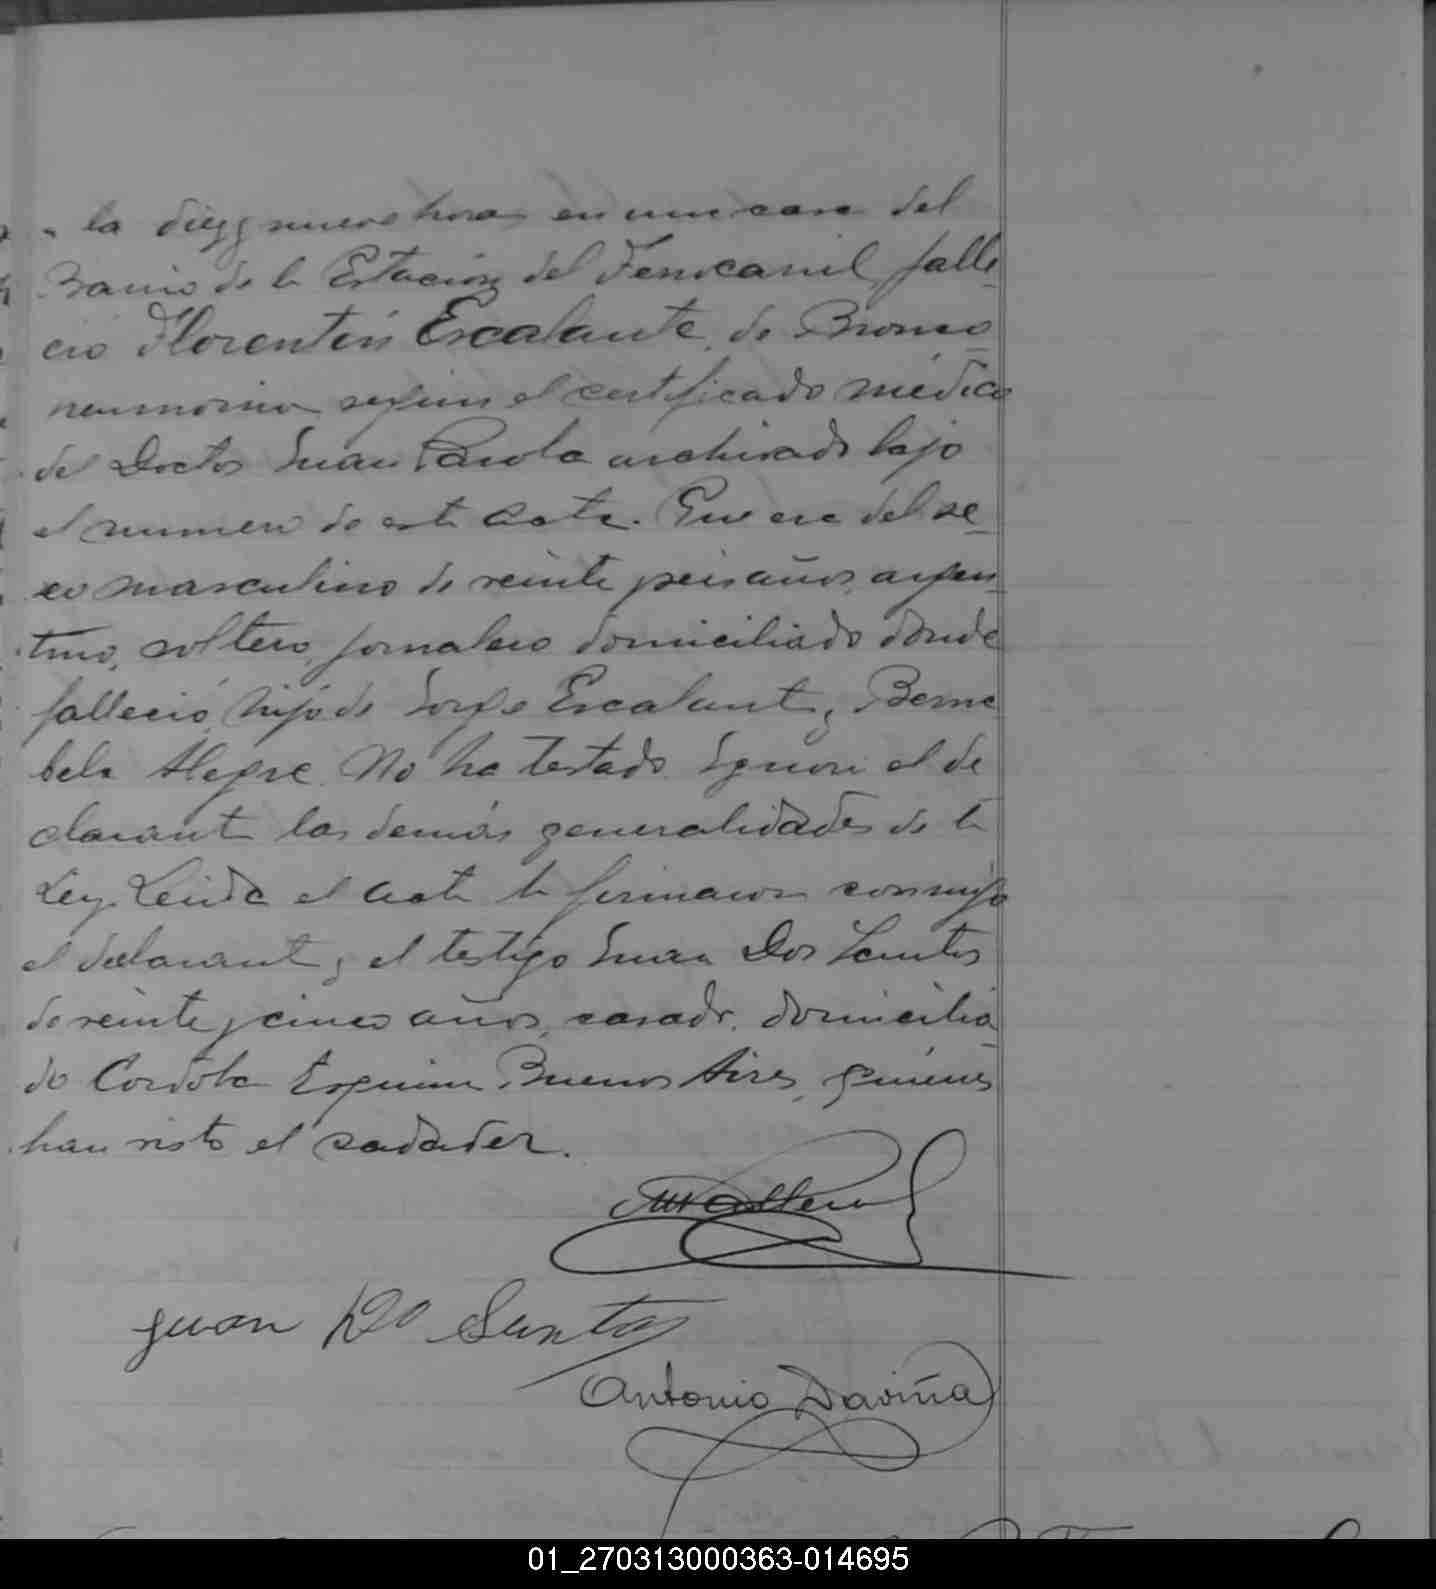 a la diez y nueve horas en una casa del
Barrio de la Estación del Ferrocarril falle
ció Florentín Escalante, de Bronco
neumonia según el certificado médico
del Doctor Juan Parola archivado bajo
el numero de este acta. Que era del se
xo masculino de veinte y seis años, argen
tino, soltero, jornalero domiciliado donde
falleció, hijo de Jorge Escalante y Berna
bela Alegre. No ha testado. Ignora el de
clarante las demás generalidades de la
Ley. Leida el acta la firmaron conmigo
el declarante y el testigo Juan Dos Santos
de veinte y cinco años, casado, domicilia
do Cordoba Esquina Buenos Aires, quienes
han visto el cadaver.
Juan Do Santos
Antonio Daviña
01_270313000363-014695